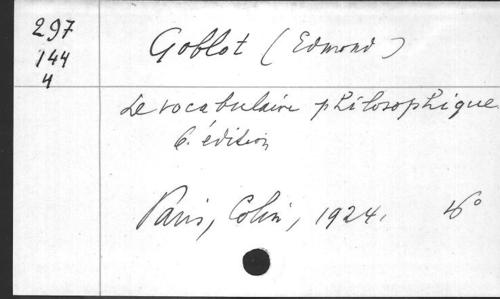 297
144
4
Goblot (Edmond)
Le vocabulaire philosophique.
6. édition
Paris, Colin, 1924.